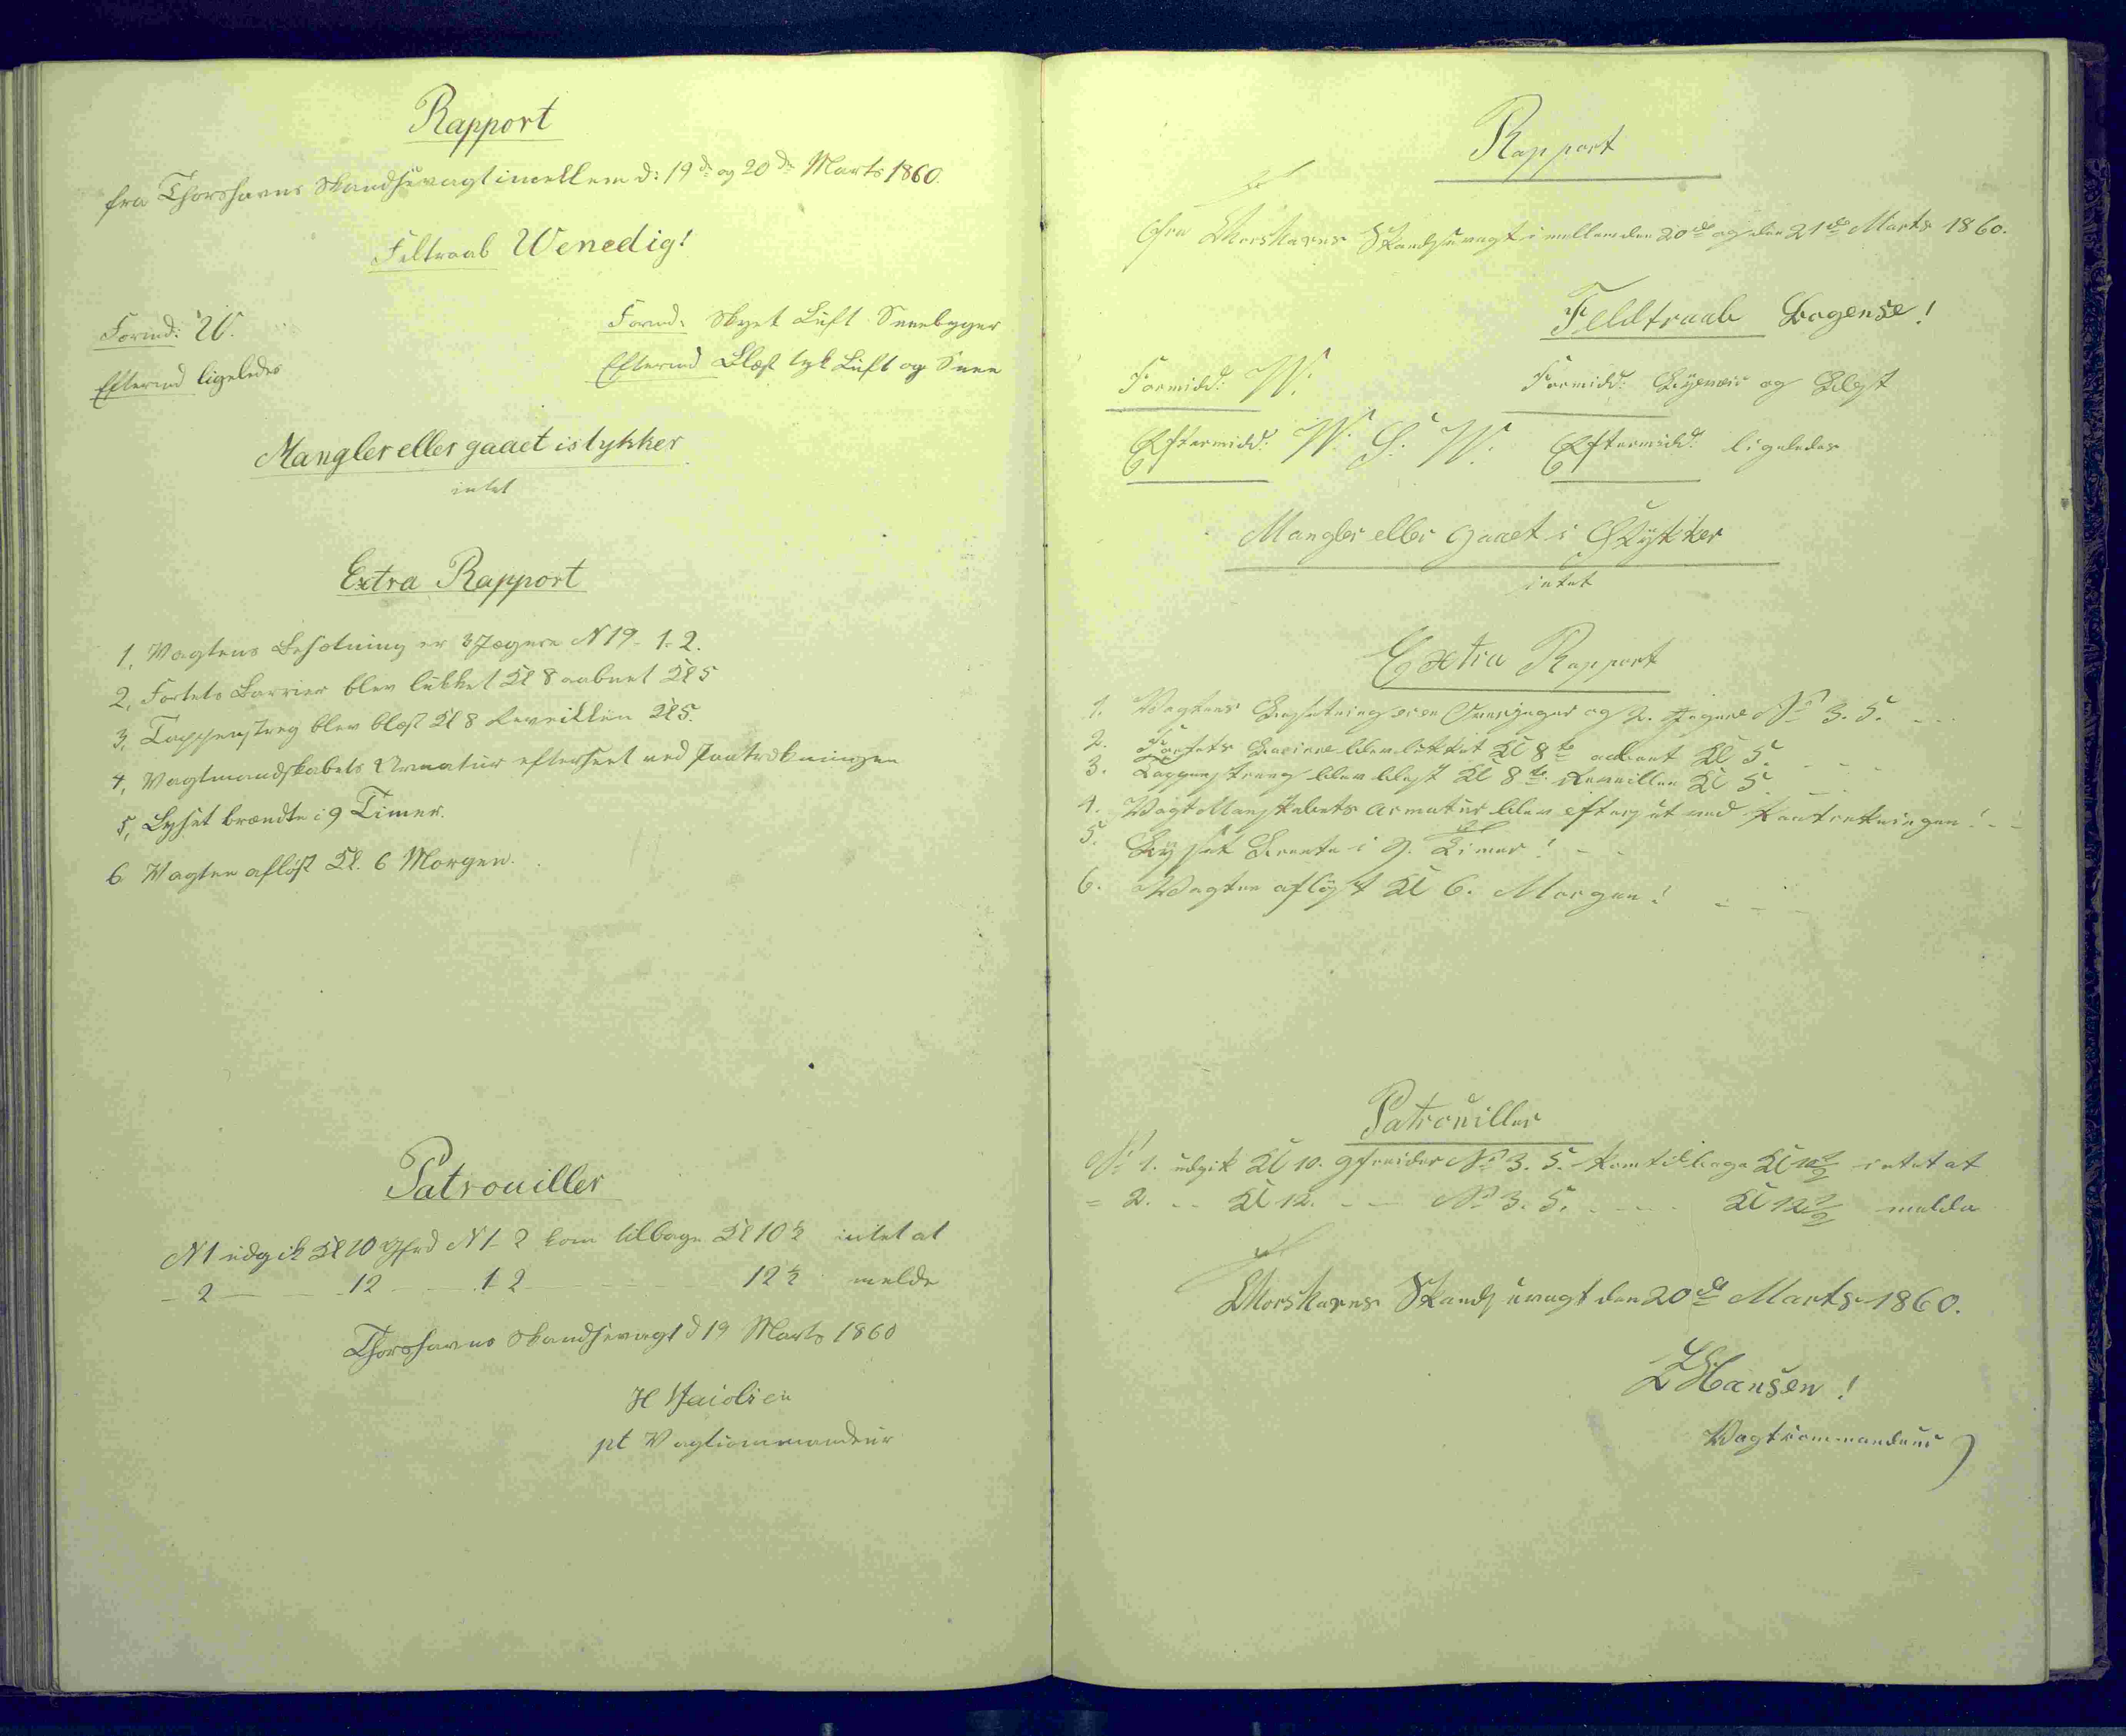 Rapport
fra Thorshavns Skandsevagt imellem d: 19de og 20de Marts 1860.
Feltraab Wenedig!
Formd: V.
Formd: Skyet Luft Sneebyger
Eftermd ligeledes
Eftermd Blæst tyk Luft og Snee
Mangler eller gaaet istykker
intet
Extra Rapport
1, Vagtens Besætning er 3 Jægere N 19- 1- 2.
2, Fortets Barrier blev lukket Kl 8 aabnet Kl 5
3, Tappenstreg blev blæst Kl 8 Reveillen Kl 5.
4, Vagtmandskabets Armatur efterseet ved Paatrækningen
5, Lyset brændte i 9 Timer.
6 Vagten afløst Kl. 6 Morgen.
Patrouiller
N 1 udgik Kl 10 Gfrd N 1- 2 kom tilbage Kl 10½ intet at
- 2 - - 12 - - 1 2 - - - 12½ melde
Thorshavns Skandsevagt d 19 Marts 1860
H
pt Vagtcommandeur
Rapport
Fra Thorshavns Skandsevagt imellem den 20de og den 21de Marts 1860.
Feldtraab Bogense!
Formidd: W.
Formidd: og Blæst
Eftermidd: W. S. W.
Eftermidd: ligeledes
Mangler eller gaaet i Stykker
intet
Extra Rapport
1. Vagtens Besætning er en Overjæger og 2. Jægere No 3. 5. - - -
2. Fortets Bariere blev lukket Kl 8te aabnet Kl 5. - - -
3. Tappenstreeg blev blæst Kl 8te Reveillen Kl 5. - - -
4. Vagt Manskabets Armatur blev efterset ved Paatrekningen! - -
5. Lyset Brente i 9. Timer! - -
6. Vagten afløst Kl 6. Morgen! - - -
Patrouiller
No 1. udgik Kl 10. gefreider No 3. 5. kom tilbage Kl 10½ intet at
= 2. - - Kl 12. - - No 3. 5. - - - - Kl 12½ melde
Thorshavns Skandsevagt den 20de Marts 1860.
Hansen!
Vagtcommandeur